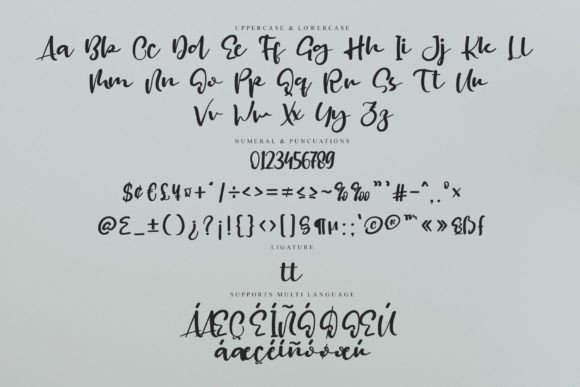 UPPERCASE & LOWERCASE
Aa Bb Cc Dd Ee Ff Gg Hh Ii Jj Kk Ll
Mm Nn Oo Pp Qq Rr Ss Tt Uu
Vv Ww Xx Yy Zz
NUMERAL & PUNCUATIONS
0123456789
$¢€£¥¤+·/÷<>=≠≤≥~%‰"'#-^.,°×
@&_±()¿?¡!{}‹›[]§¶µ:;'©®™«»
LIGATURE
tt
SUPPORTS MULTI LANGUAGE
ÁÆÇÉÍÑÓØŒÚ
áæçéíñóøœú